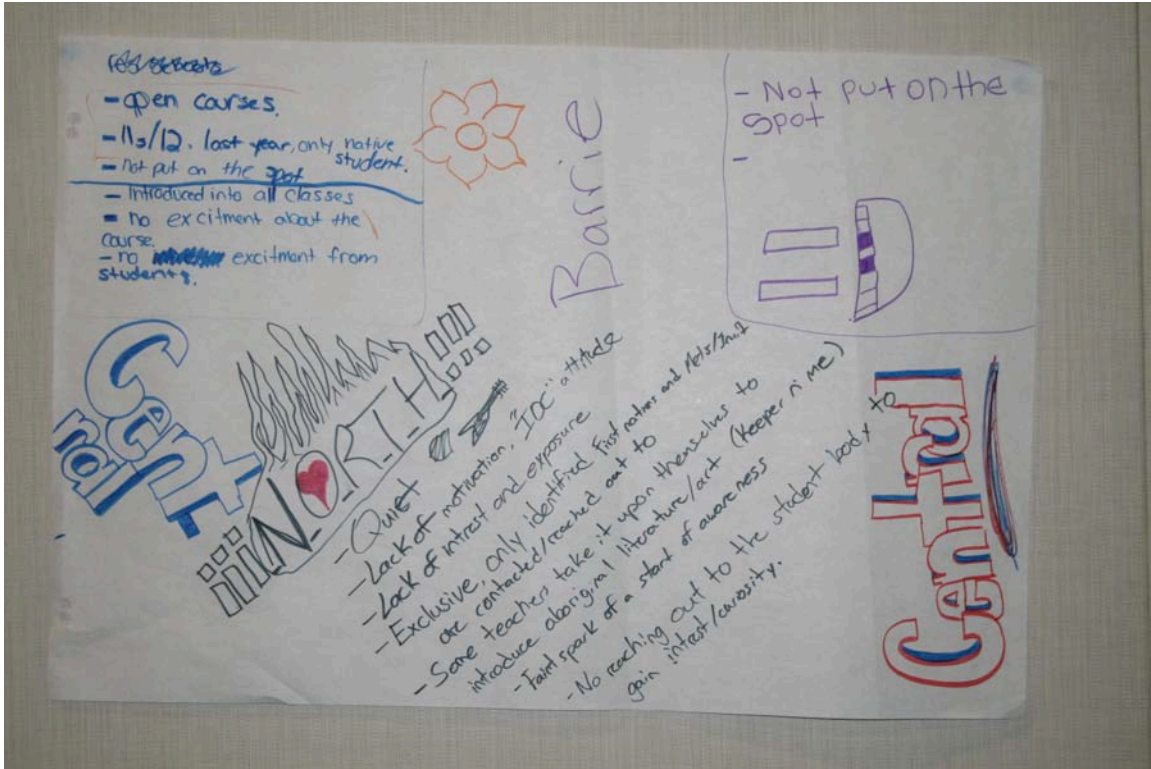 - open courses.
- 11s/12. last year, only native
student.
- not put on the spot
- Introduced into all classes
- no excitment about the
course.
- no excitment from
students.
Barrie
- Not put on the
spot
-
Central
NORTH
- Quiet
- Lack of motivation, "IDC" attitude
- Lack of intrest and exposure
- Exclusive, only identified First natives and Metis/Inuit
are contacted/reached out to
- Some teachers take it upon themselves to
introduce aboriginal literature/art (Keeper n me)
- Faint spark of a start of awareness
- No reaching out to the student body to
gain intrest/curiosity.
Central